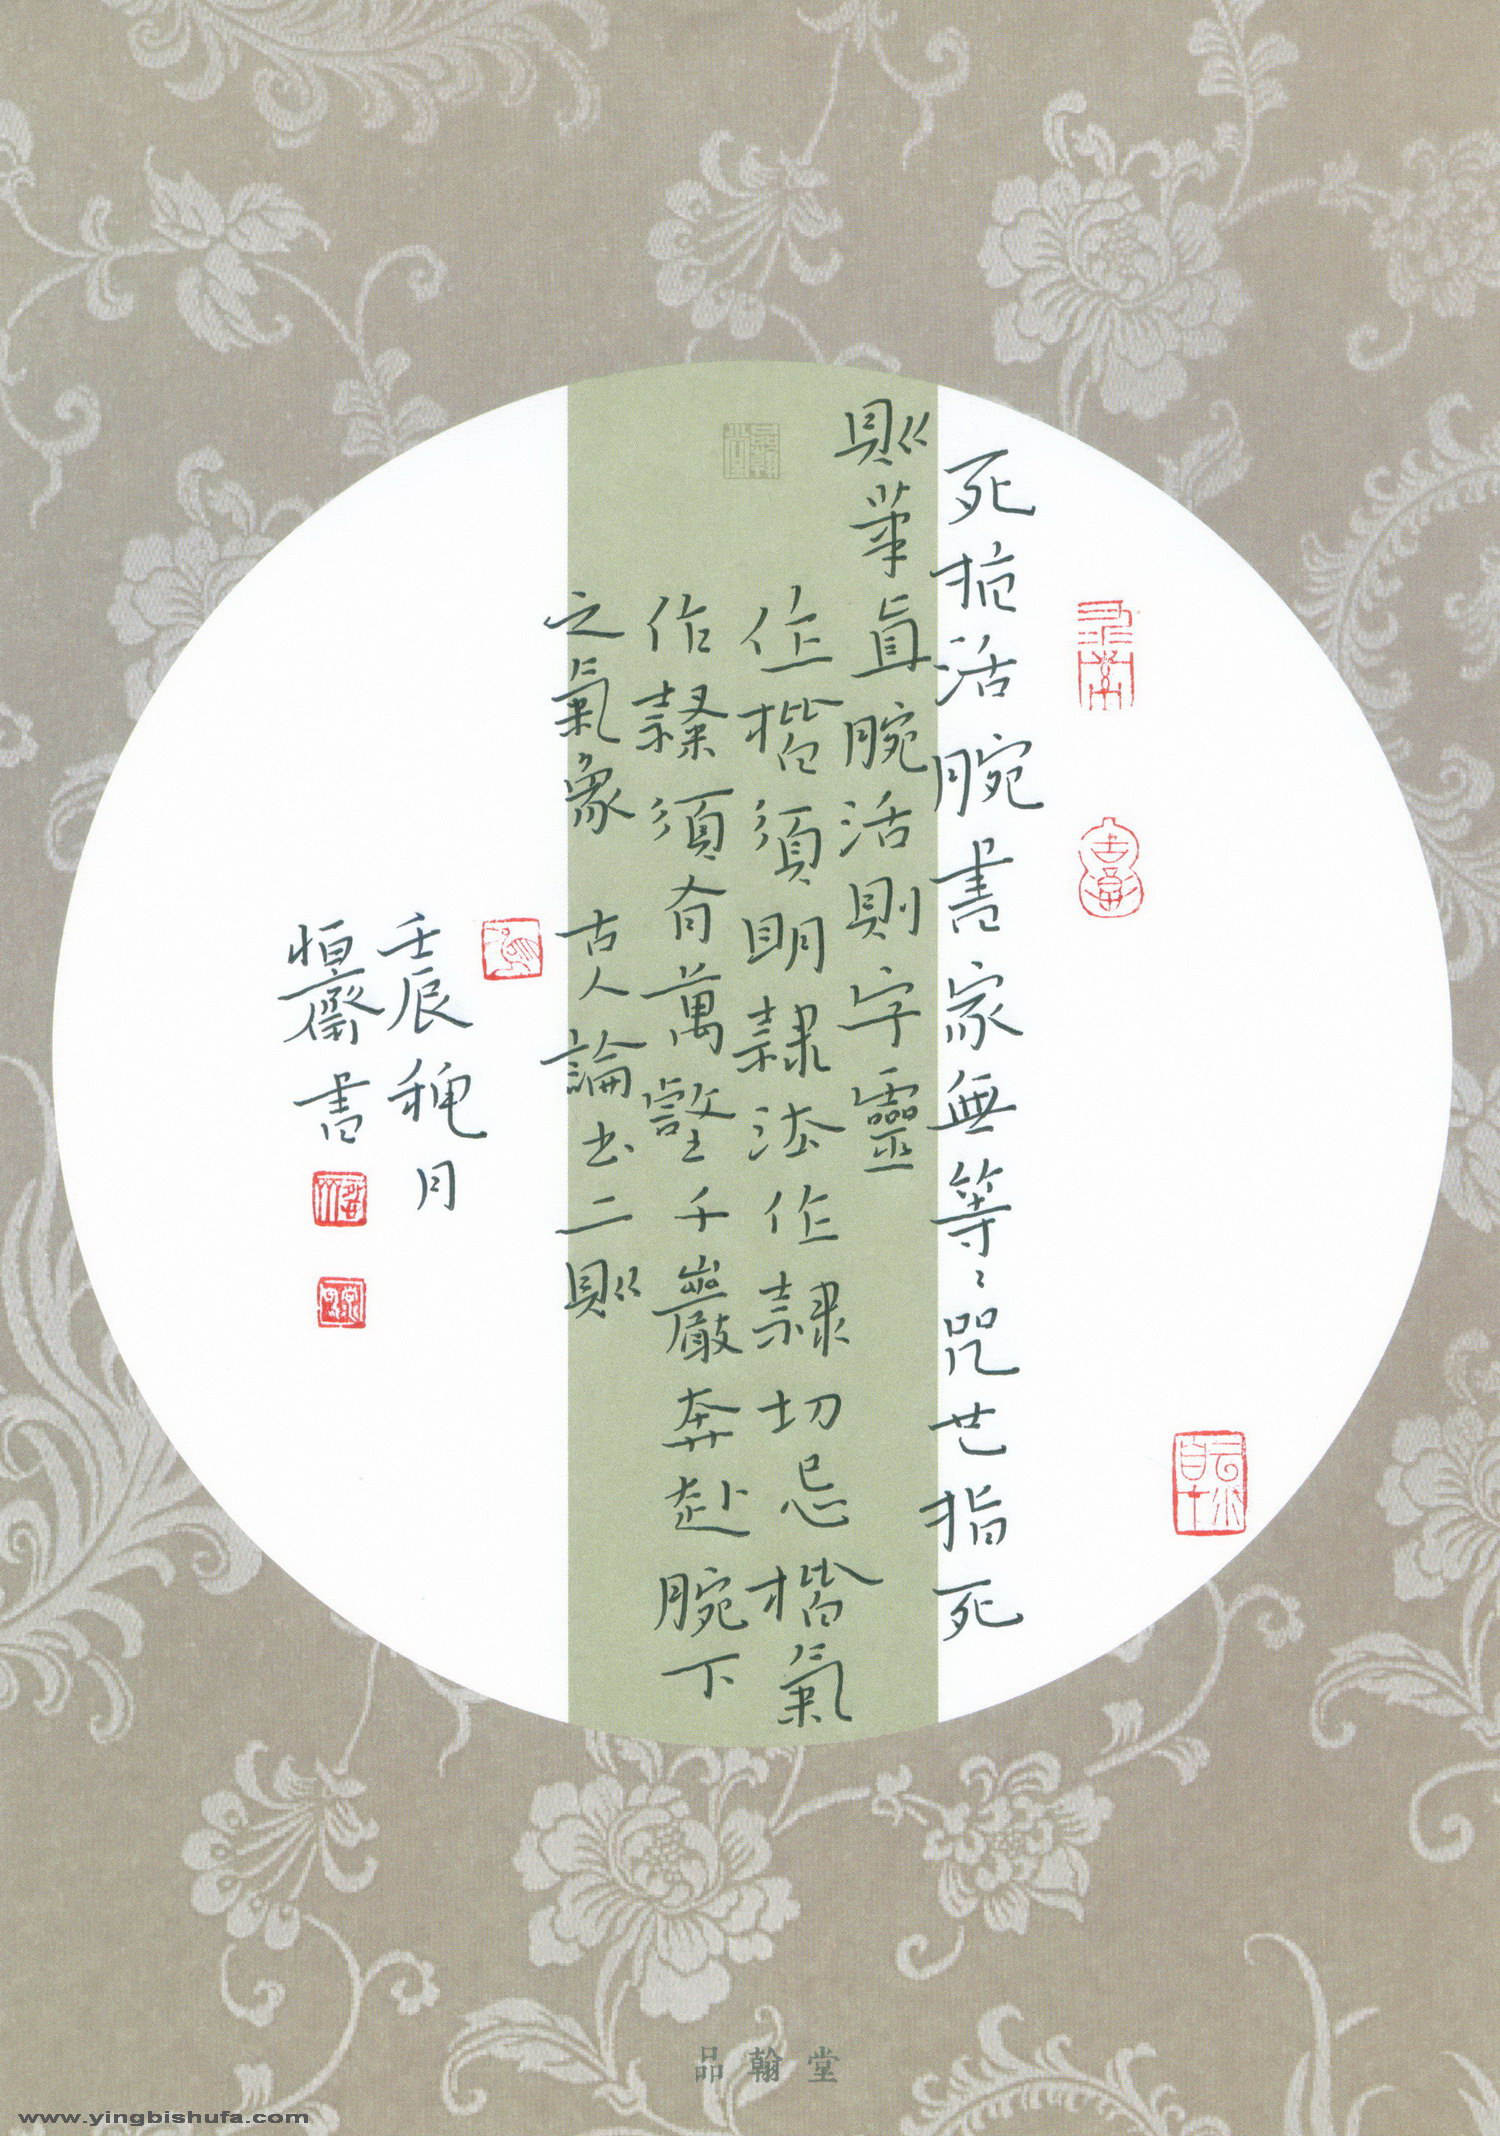 死指活腕書家無等等咒也指死
則筆直腕活則字靈
作楷須明隸法作隸切忌楷氣
作隸須有萬壑千巖奔赴腕下
之氣象 古人論書二則
壬辰秋月
恒齋書
品翰堂
www.yingbishufa.com